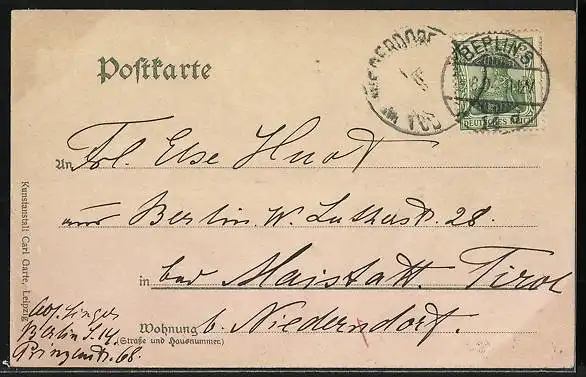 Postkarte
NIEDERDORF
BERLIN S
DEUTSCHES REICH
An Frl. Else Huot
aus Berlin W. Lutherstr. 28.
in bad Maistatt. Tirol
Wohnung b. Niederndorf.
(Straße und Hausnummer.)
Abs. Singer
Berlin S. 14,
Prinzenstr. 68.
Kunstanstalt Carl Garte, Leipzig